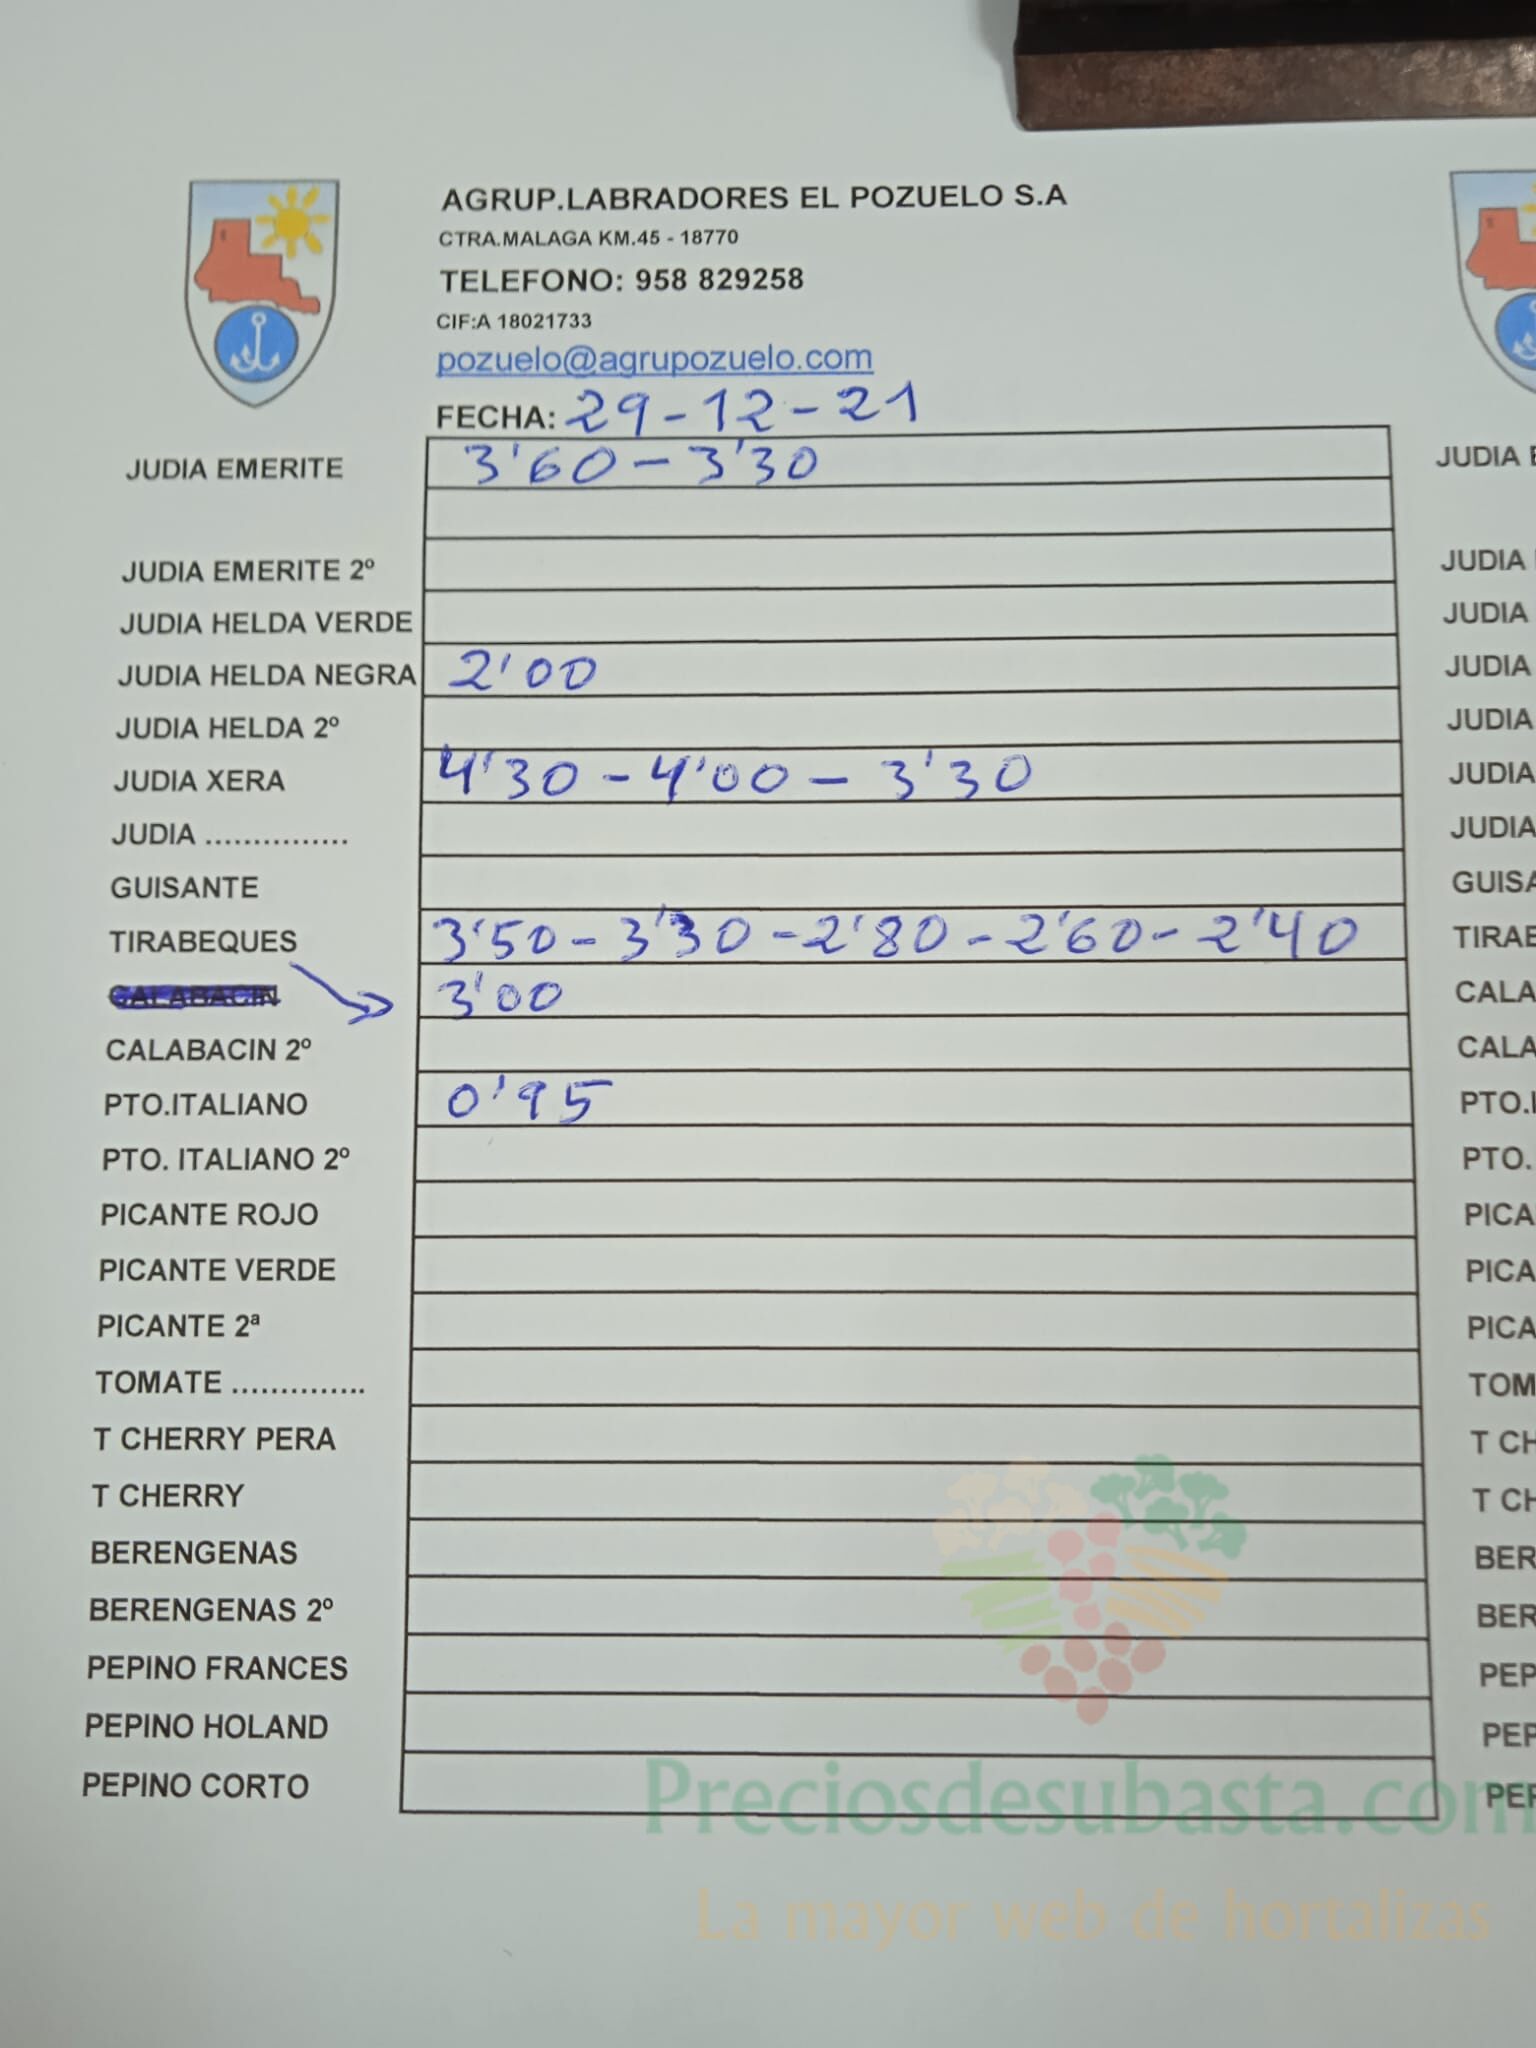 AGRUP.LABRADORES EL POZUELO S.A
CTRA.MALAGA KM.45 - 18770
TELEFONO: 958 829258
CIF:A 18021733
pozuelo@agrupozuelo.com
FECHA: 29-12-21
JUDIA EMERITE 3'60 - 3'30
JUDIA EMERITE 2º
JUDIA HELDA VERDE
JUDIA HELDA NEGRA 2'00
JUDIA HELDA 2º
JUDIA XERA 4'30 - 4'00 - 3'30
JUDIA ...............
GUISANTE
TIRABEQUES 3'50 - 3'30 - 2'80 - 2'60 - 2'40
CALABACIN 3'00
CALABACIN 2º
PTO.ITALIANO 0'95
PTO. ITALIANO 2º
PICANTE ROJO
PICANTE VERDE
PICANTE 2ª
TOMATE ..............
T CHERRY PERA
T CHERRY
BERENGENAS
BERENGENAS 2º
PEPINO FRANCES
PEPINO HOLAND
PEPINO CORTO
JUDIA E
JUDIA
JUDIA
JUDIA
JUDIA
JUDIA
JUDIA
GUISA
TIRABE
CALA
CALA
PTO.I
PTO.
PICA
PICA
PICA
TOM
T CH
T CH
BER
BER
PEP
PEP
PEP
Preciosdesubasta.com
La mayor web de hortalizas